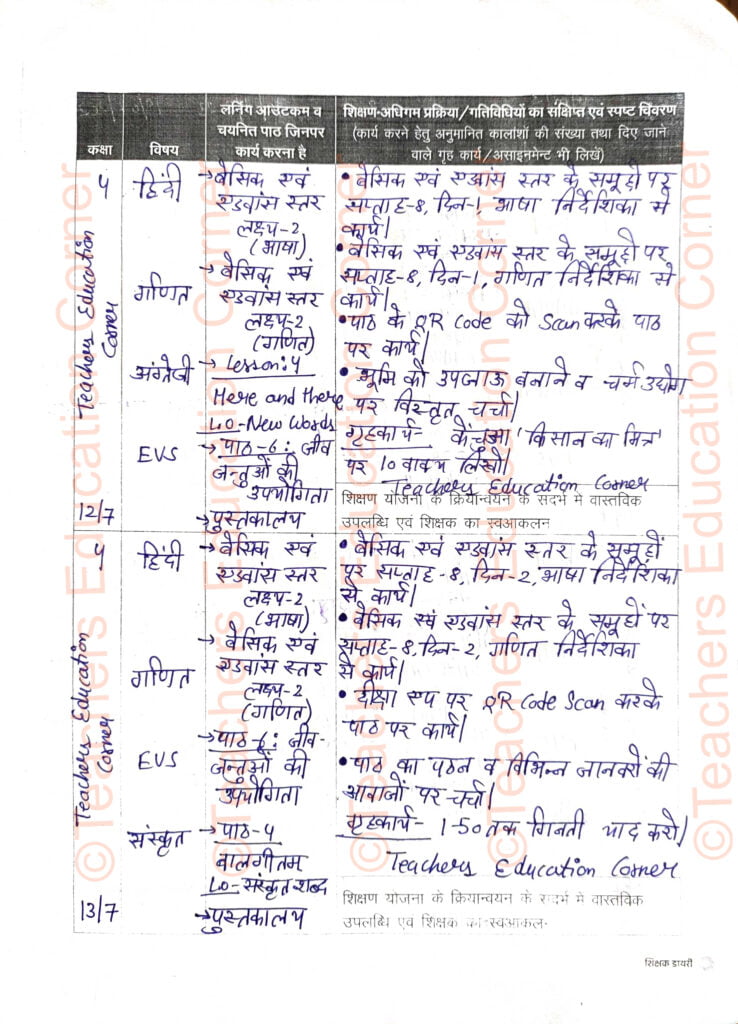 कक्षा
विषय
लर्निंग आउटकम व
चयनित पाठ जिनपर
कार्य करना है
शिक्षण-अधिगम प्रक्रिया/गतिविधियों का संक्षिप्त एवं स्पष्ट विवरण
(कार्य करने हेतु अनुमानित कालांशों की संख्या तथा दिए जाने
वाले गृह कार्य/असाइनमेंट भी लिखें)
५
Teachers Education
Corner
12/7
हिंदी
गणित
अंग्रेजी
EVS
→ बेसिक एवं
एडवांस स्तर
लक्ष्य-2
(भाषा)
→ बेसिक एवं
एडवांस स्तर
लक्ष्य-2
(गणित)
→ Lesson:4
Here and there
LO-New Words
→ पाठ-6: जीव
जन्तुओं की
उपयोगिता
→पुस्तकालय
• बेसिक एवं एडवांस स्तर के समूहों पर
सप्ताह-8, दिन-1, भाषा निर्देशिका से
कार्य।
• बेसिक एवं एडवांस स्तर के समूहों पर
सप्ताह-8, दिन-1, गणित निर्देशिका से
कार्य।
•पाठ के QR Code को Scan करके पाठ
पर कार्य।
• भूमि को उपजाऊ बनाने व चर्म उद्योग
पर विस्तृत चर्चा।
गृहकार्य- केंचुआ 'किसान का मित्र'
पर 10 वाक्य लिखो।
Teachers Education Corner
शिक्षण योजना के क्रियान्वयन के संदर्भ में वास्तविक
उपलब्धि एवं शिक्षक का स्वआकलन
५
Teachers Education
Corner
13/7
हिंदी
गणित
EVS
संस्कृत
→ बेसिक एवं
एडवांस स्तर
लक्ष्य-2
(भाषा)
→ बेसिक एवं
एडवांस स्तर
लक्ष्य-2
(गणित)
→पाठ-6: जीव-
जन्तुओं की
उपयोगिता
→ पाठ-५
बालगीतम्
LO-संस्कृत शब्द
→पुस्तकालय
• बेसिक एवं एडवांस स्तर के समूहों
पर सप्ताह-8, दिन-2, भाषा निर्देशिका
से कार्य।
• बेसिक एवं एडवांस स्तर के समूहों पर
सप्ताह-8, दिन-2, गणित निर्देशिका
से कार्य।
• दीक्षा एप पर QR Code Scan करके
पाठ पर कार्य।
• पाठ का पठन व विभिन्न जानवरों की
आवाजों पर चर्चा।
गृहकार्य- 1-50 तक गिनती याद करो।
Teachers Education Corner
शिक्षण योजना के क्रियान्वयन के संदर्भ में वास्तविक
उपलब्धि एवं शिक्षक का स्वआकलन
शिक्षक डायरी
©Teachers Education Corner
©Teachers Education Corner
©Teachers Education Corner